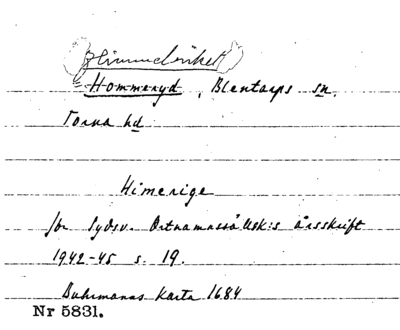 (Himmelriket)
Hommeryd, Blentarps sn.
Torna hd
Himerige
jfr Sydsv. Ortnamnssällsk:s årsskrift
1942-45 s. 19.
Buhrmanns karta 1684
Nr 5831.